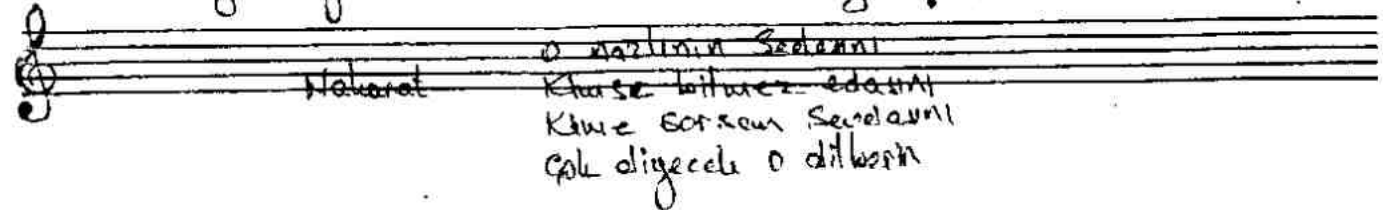 O nazlının Sedasını
Nakarat Kimse bilmez edasını
Kime sorsam Sevdasını
Çok diyecek o dilberin